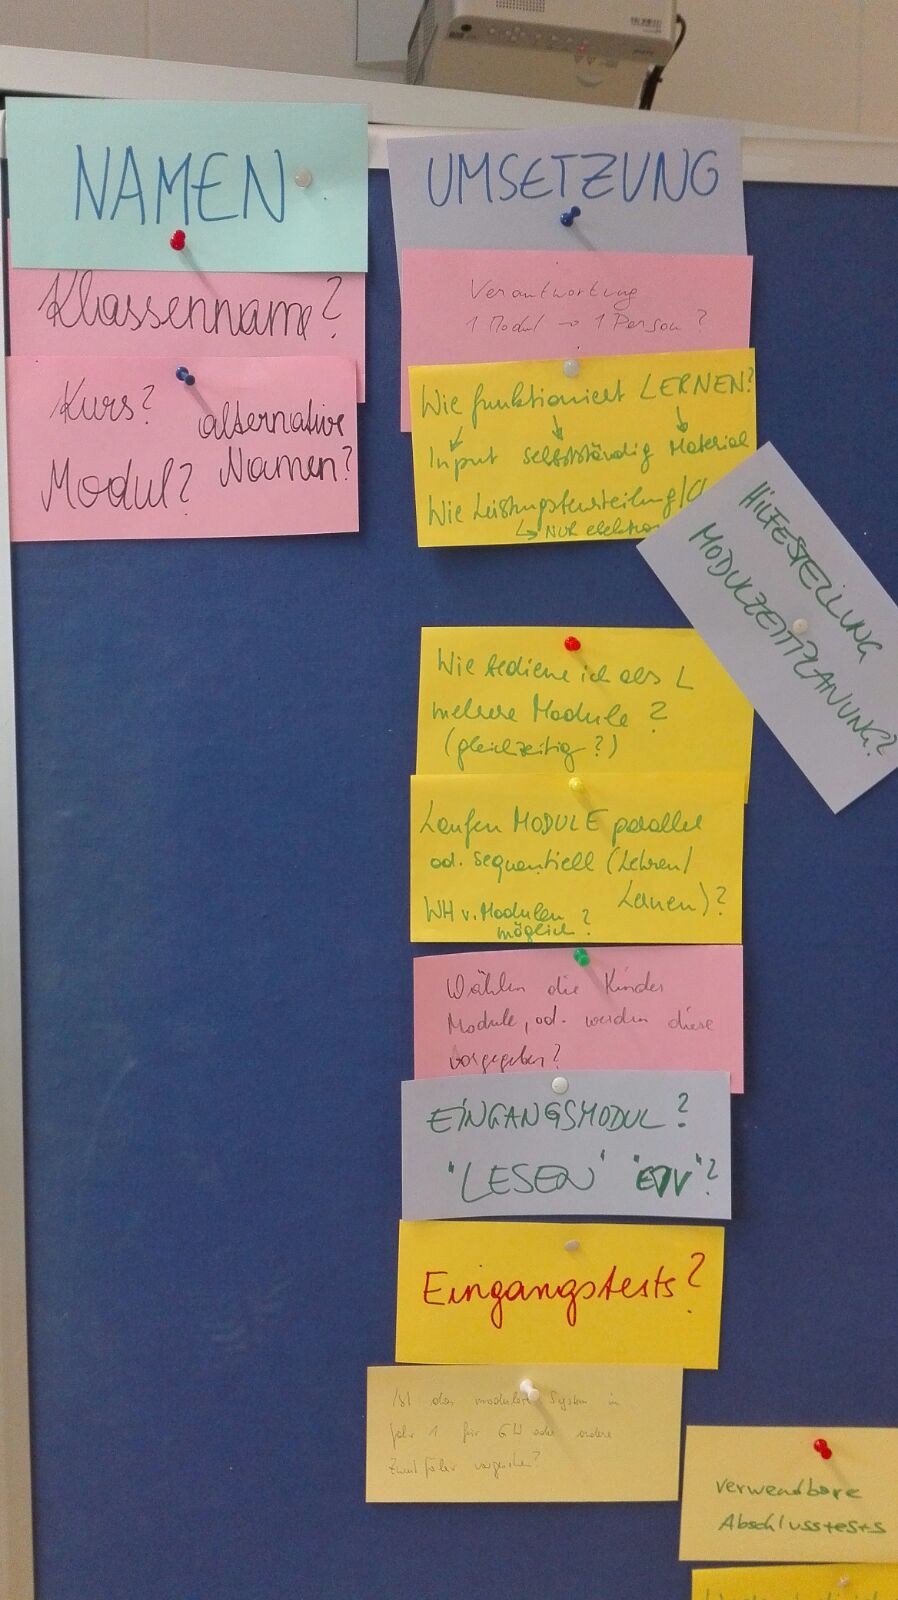 NAMEN
Klassenname?
Kurs? alternative
Modul? Namen?
UMSETZUNG
Verantwortung
1 Modul → 1 Person?
Wie funktioniert LERNEN?
Input selbstständig Material
Wie
↳ nur
HILFESTELLUNG
MODULZEITPLANUNG?
Wie bediene ich als L
mehrere Module?
(gleichzeitig?)
Laufen MODULE parallel
od. sequentiell (Lehren/
Lernen)?
WH v. Modulen
möglich?
Wählen die Kinder
Module, od. werden diese
vorgegeben?
EINGANGSMODUL?
"LESEN" "EDV"?
Eingangstests?
Ist das modulare System in
Jahr 1 für GW oder andere
vorgesehen?
verwendbare
Abschlusstests